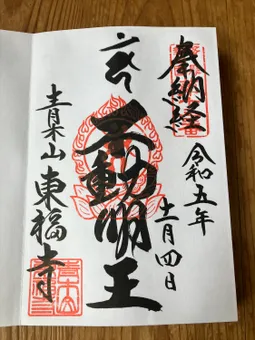 奉納経
令和五年
十一月四日
不動明王
青木山 東福寺